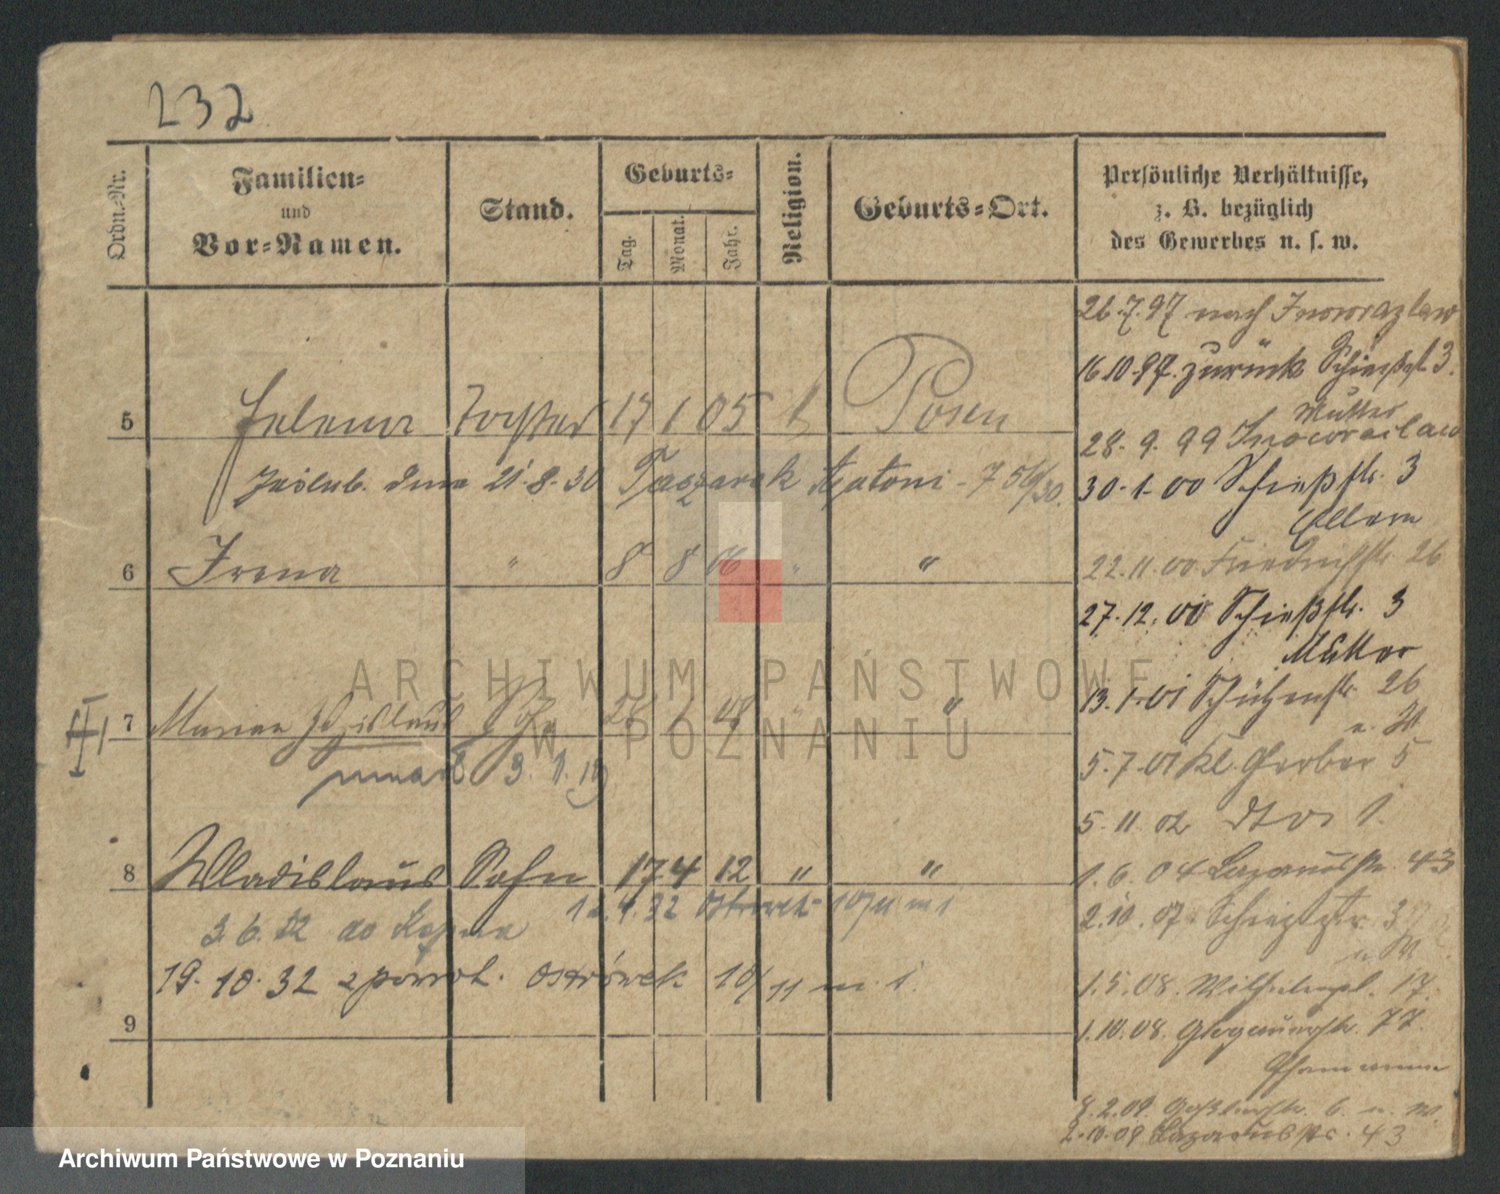 232
Ordn.-Nr.
Familien-
und
Vor-Namen.
Stand.
Geburts-
Tag.
Monat.
Jahr.
Religion.
Geburts-Ort.
Persönliche Verhältnisse,
z. B. bezüglich
des Gewerbes u. s. w.
26.7.97 nach Inowrazlaw
16.10.97. zurück Schießst. 3.
Mutter
5 Helena Tochter 17 1 05 Posen
28. 9. 99 Inowrazlaw
21.8.30 Taczarek Antoni - 7
30.1.00 Schießstr. 3
Eltern
6 Irena " 8 8 06 " "
22.11.00 Friedrichstr. 26
27.12.00 Schießstr. 3
Mutter
13.1.01 Schützenstr. 26
7 Marian Zdzislaus "
zmarł 3. 1. 19
5.7.01 Kl. Gerber 5
5.11.02 dto 1.
8 Wladislaus Sohn 17 4 12 " "
1.6.04 Lazarusstr. 43
4.32 Ostrówek 10/11 m 1
2.10.07 Schießstr. 3
3.6.32 do Kępna
19.10.32 z powrot. Ostrówek 10/11 m. 1.
1.5.08. Wilhelmspl. 17.
9
1.10.08. Glogauerstr. 77.
2.09. 6. u. W.
2.10.09 Lazarusstr. 43
ARCHIWUM PAŃSTWOWE
W POZNANIU
Archiwum Państwowe w Poznaniu